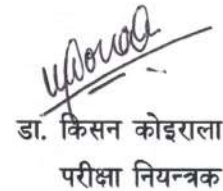 डा. किसन कोइराला
परीक्षा नियन्त्रक